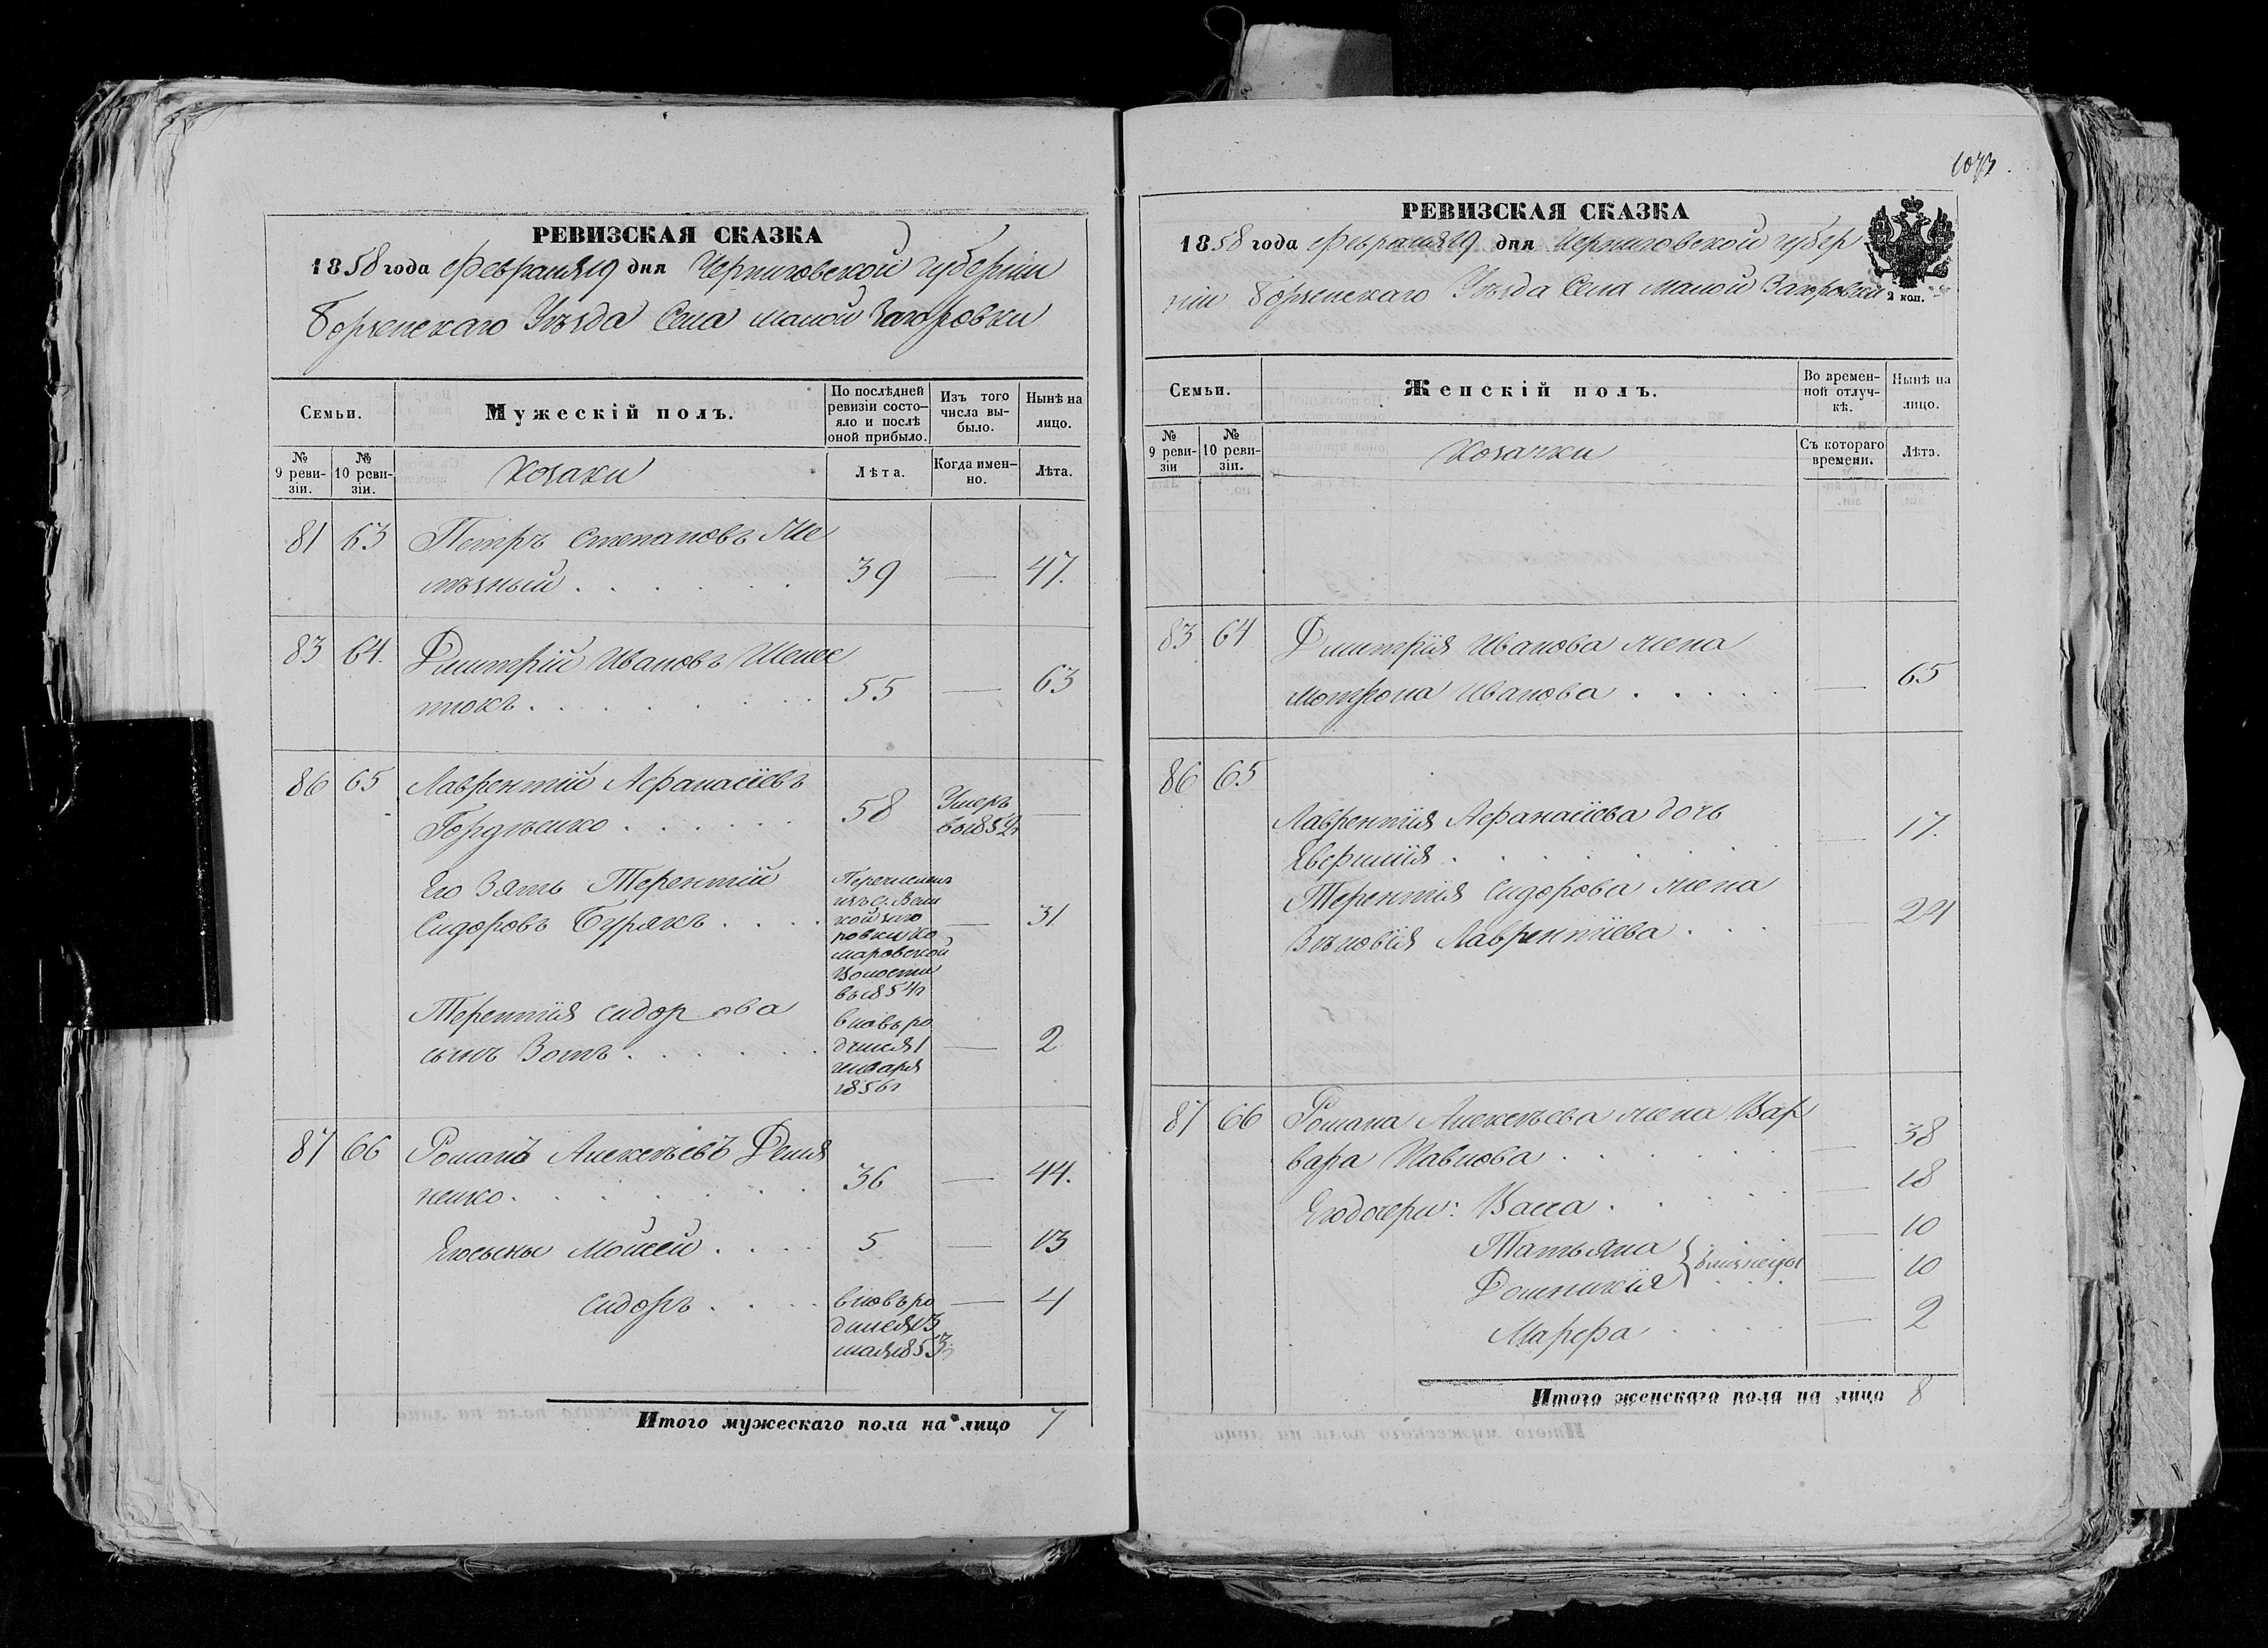 РЕВИЗСКАЯ СКАЗКА
1858 года Февраля 19 дня Черниговской губернии
Борзенскаго Уѣзда Села малой Загоровки
Семьи.
Мужескій полъ.
По послѣдней ревизіи состояло и послѣ оной прибыло.
Изъ того числа выбыло.
Нынѣ на лицо.
№ 9 ревизіи.
№ 10 ревизіи.
Козаки
Лѣта.
Когда именно.
Лѣта.
81 63 Петръ Степановъ
39 — 47.
83 64. Дмитрій Ивановъ Шелес
тюкъ 55 — 63
86 65 Лаврентій Афанасіевъ
Гордѣенко 58 Умеръ въ 1852г —
Его Зять Терентій
Сидоровъ Бурякъ
Перечисленъ
изъ с. Вели
кой заго
ровки Ко
маровской
Волости
въ 1854г
— 31
Терентія Сидорова
сынъ Зотъ
вновь ро
дился 1
генваря
1856г
— 2
87 66 Романъ Алексѣевъ Демя
ненко 36 — 44.
Его сыны Мойсей 5 — 13
Сидоръ
вновь ро
дился 13
мая 1853г
— 4
Итого мужескаго пола на лицо 7
1073.
РЕВИЗСКАЯ СКАЗКА
1858 года Февраля 19 дня Черниговской губер
ніи Борзенскаго Уѣзда Села малой Загоровки
2 коп.
Семьи.
Женскій полъ.
Во временной отлучкѣ.
Нынѣ на лицо.
№ 9 ревизіи
№ 10 ревизіи.
Козачки
Съ котораго времени.
Лѣта.
83 64 Дмитрія Иванова жена
Мотрона Иванова — 65
86 65
Лаврентія Афанасіева дочь
Евфимія — 17.
Терентія Сидорова жена
Зѣновія Лаврентіева — 24
87 66 Романа Алексѣева жена Вар
вара Павлова — 38
Его дочери: Васса — 18
Татьяна — 10
близнецы
Домникія — 10
Марфа — 2
Итого женскаго пола на лицо 8